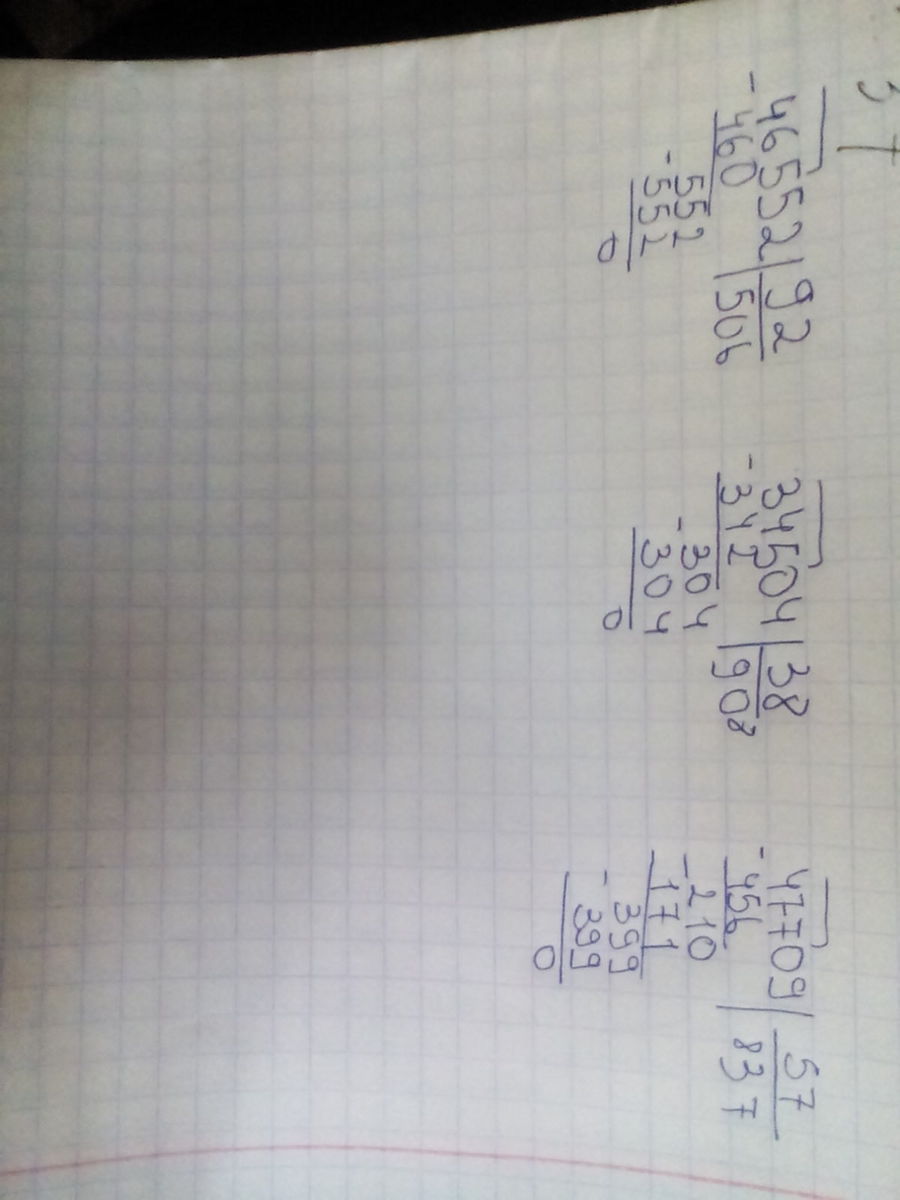 57
-46552|92
460 |506
-552
552
0
-34504|38
342 |908
-304
304
0
-47709|57
456 |837
-210
171
-399
399
0